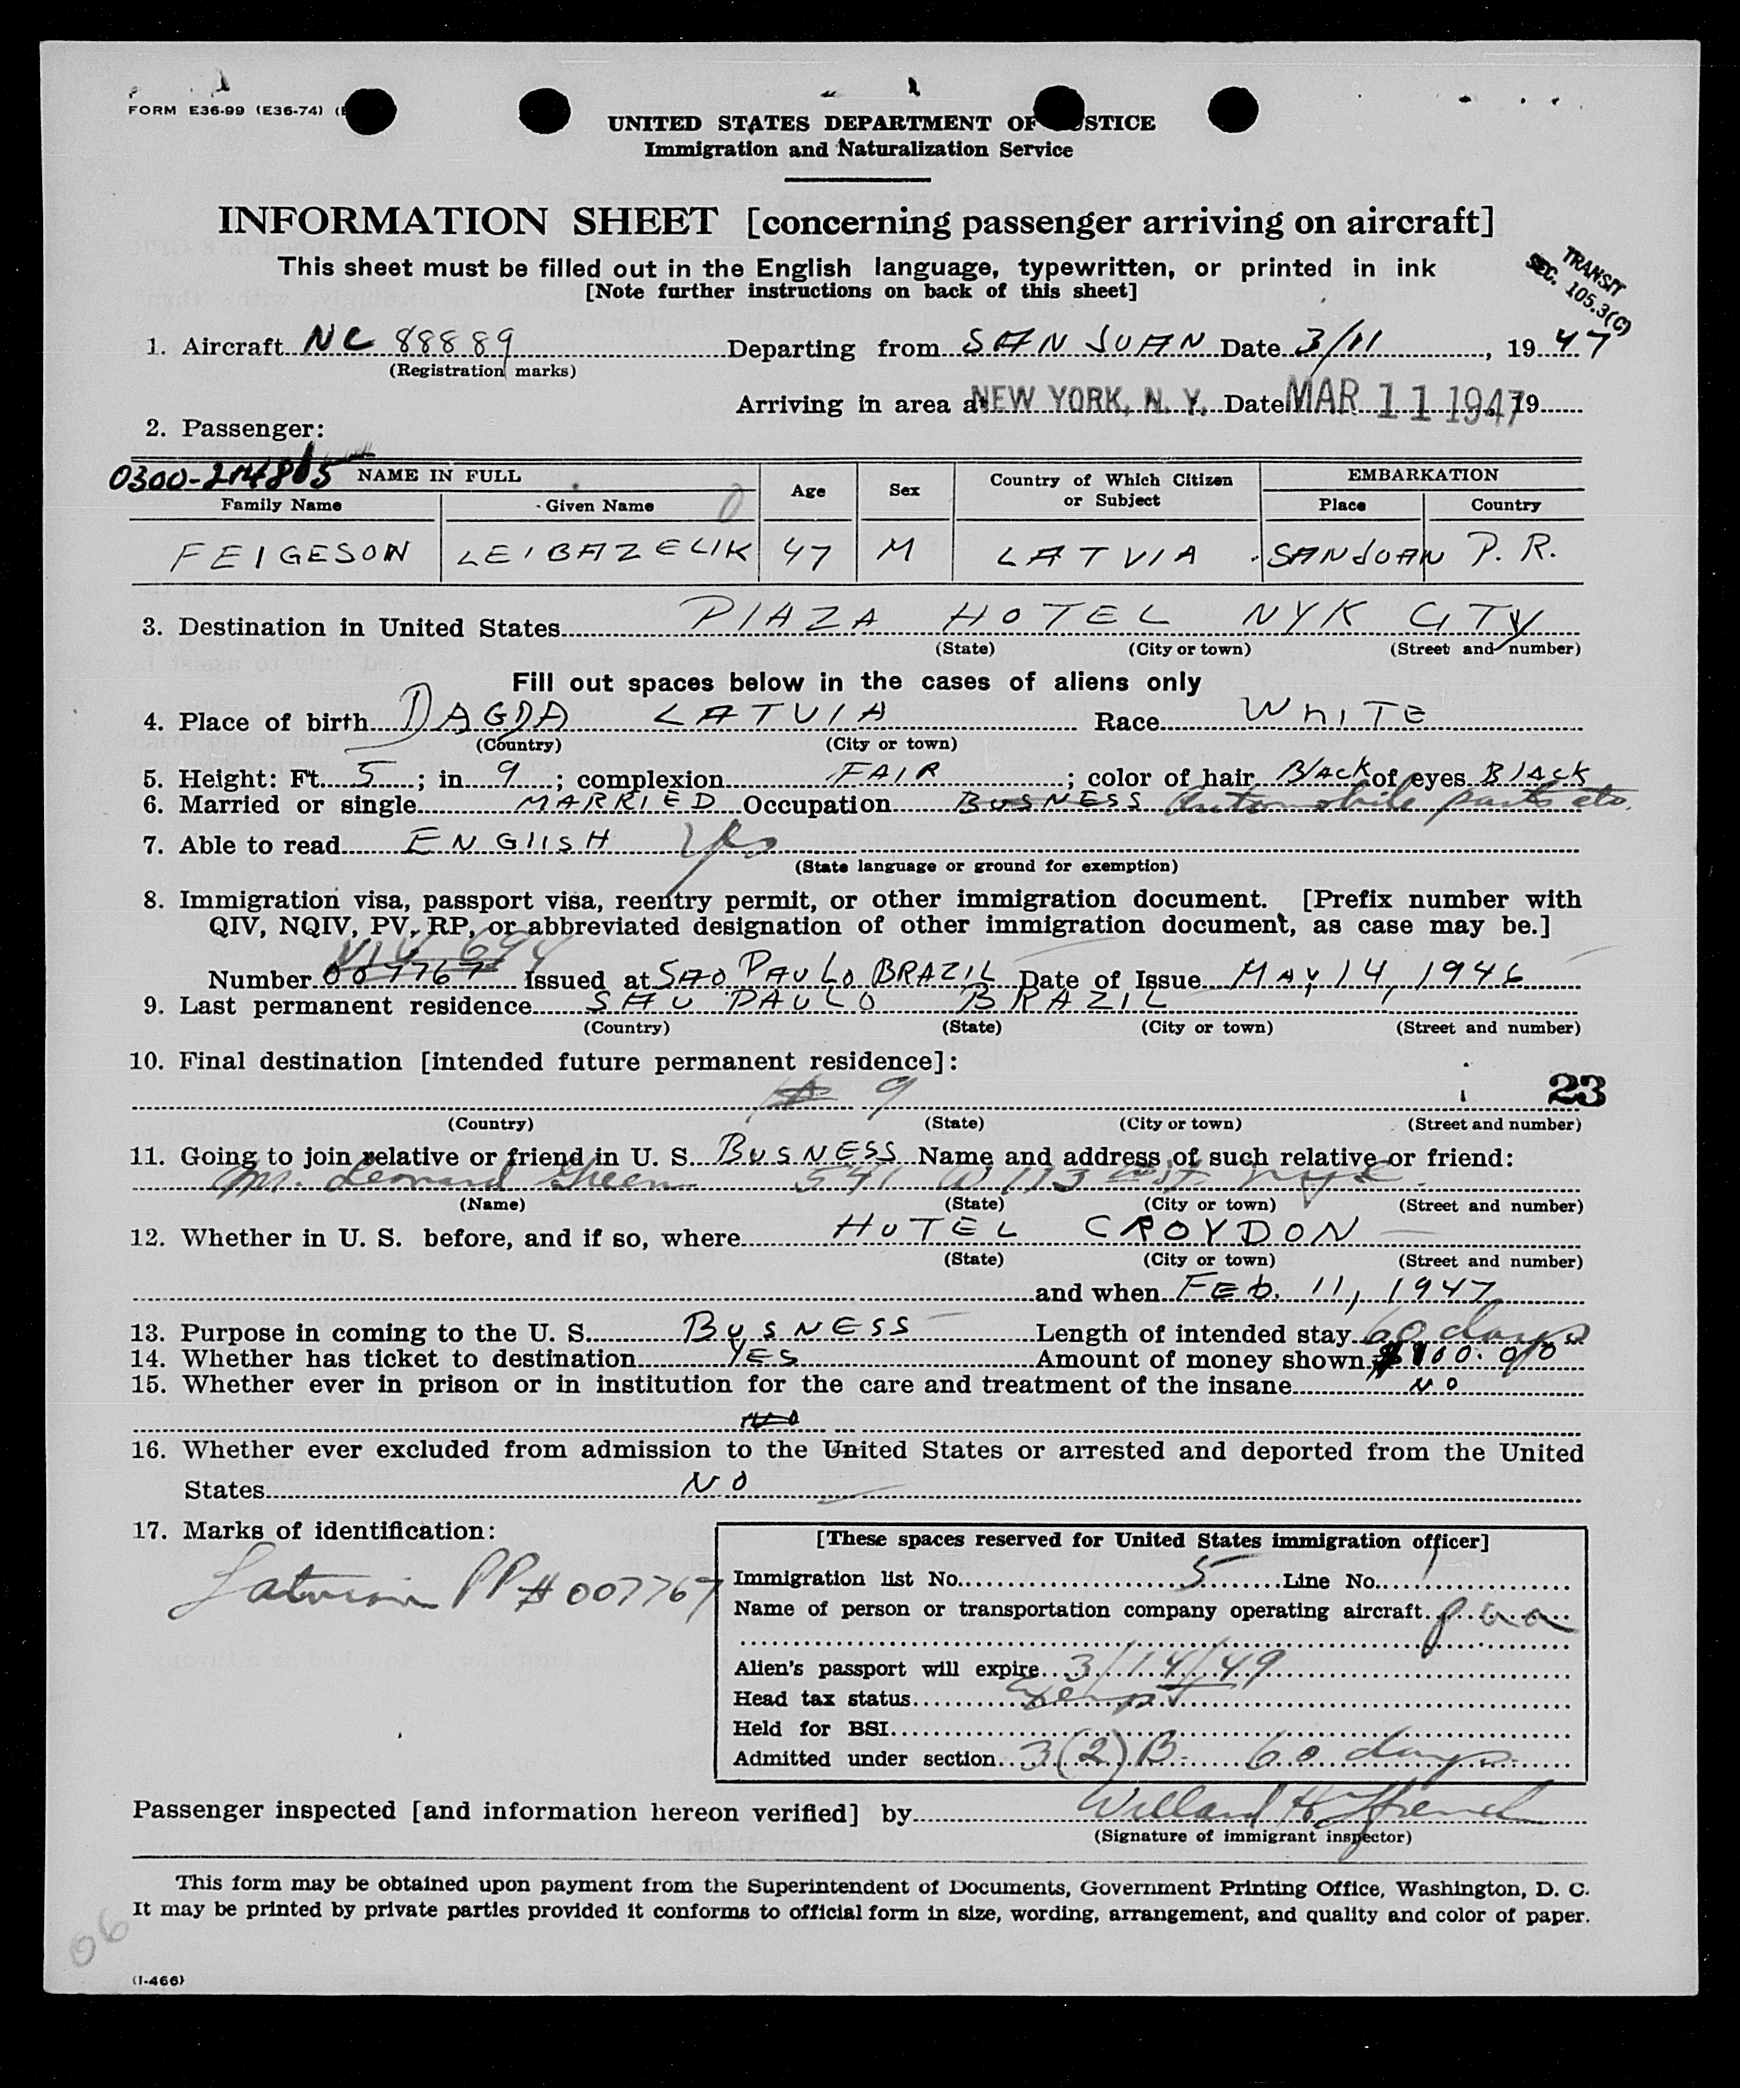 FORM E36-99 (E36-74)
UNITED STATES DEPARTMENT OF STICE
Immigration and Naturalization Service
INFORMATION SHEET [concerning passenger arriving on aircraft]
This sheet must be filled out in the English language, typewritten, or printed in ink
[Note further instructions on back of this sheet]
TRANSIT
SEC. 105.3(C)
1. Aircraft NC 88889 Departing from SAN JUAN Date 3/11, 1947
(Registration marks)
Arriving in area at NEW YORK, N. Y. Date MAR 11 1947 19
2. Passenger:
NAME IN FULL Age Sex Country of Which Citizen or Subject EMBARKATION
Family Name Given Name Place Country
FEIGESON LEIBAZELIK 47 M LATVIA SANJUAN P. R.
3. Destination in United States PLAZA HOTEL NYK CITY
(State) (City or town) (Street and number)
Fill out spaces below in the cases of aliens only
4. Place of birth DAGDA LATVIA Race WhITE
(Country) (City or town)
5. Height: Ft. 5; in. 9; complexion FAIR; color of hair BlAcK of eyes BlAcK
6. Married or single MARRIED Occupation BUSNESS Automobile parts etc.
7. Able to read ENGlISH Yes
(State language or ground for exemption)
8. Immigration visa, passport visa, reentry permit, or other immigration document. [Prefix number with
QIV, NQIV, PV, RP, or abbreviated designation of other immigration document, as case may be.]
NIV 694
Number 007767 Issued at SAO PAULO BRAZIL Date of Issue MAY 14, 1946
9. Last permanent residence SAO PAULO BRAZIL
(Country) (State) (City or town) (Street and number)
10. Final destination [intended future permanent residence]:
9
23
(Country) (State) (City or town) (Street and number)
11. Going to join relative or friend in U. S. BUSNESS Name and address of such relative or friend:
Mr. Leonard Green 541 W 113 St. NYC.
(Name) (State) (City or town) (Street and number)
12. Whether in U. S. before, and if so, where HOTEL CROYDON
(State) (City or town) (Street and number)
and when FEb. 11, 1947
13. Purpose in coming to the U. S. BUSNESS Length of intended stay 60 days
14. Whether has ticket to destination YES Amount of money shown $100.00
15. Whether ever in prison or in institution for the care and treatment of the insane NO
16. Whether ever excluded from admission to the United States or arrested and deported from the United
States NO
17. Marks of identification:
Latvian PP# 007767
[These spaces reserved for United States immigration officer]
Immigration list No. 5 Line No. 1
Name of person or transportation company operating aircraft paa
Alien's passport will expire 3/14/49
Head tax status Exempt
Held for BSI
Admitted under section 3(2)B- 60 days
Passenger inspected [and information hereon verified] by Willard H. French
(Signature of immigrant inspector)
This form may be obtained upon payment from the Superintendent of Documents, Government Printing Office, Washington, D. C.
It may be printed by private parties provided it conforms to official form in size, wording, arrangement, and quality and color of paper.
(I-466)